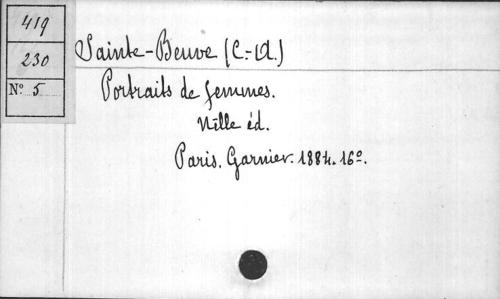 419
230
Nº 5
Sainte-Beuve (C.-A.)
Portraits de femmes.
Nlle éd.
Paris. Garnier. 1884. 16º.